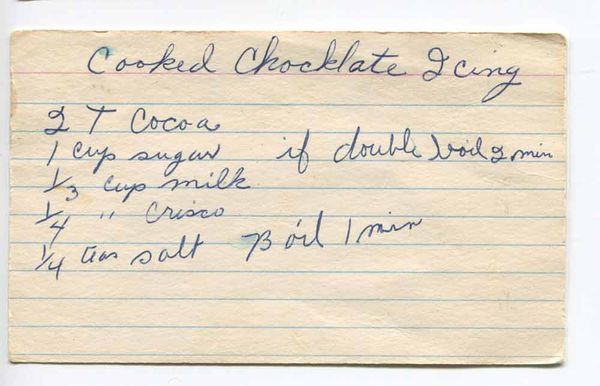 Cooked Chocklate Icing
2 T Cocoa
1 cup sugar if double boil 2 min
1/3 cup milk
1/4 " Crisco
1/4 teas salt Boil 1 min